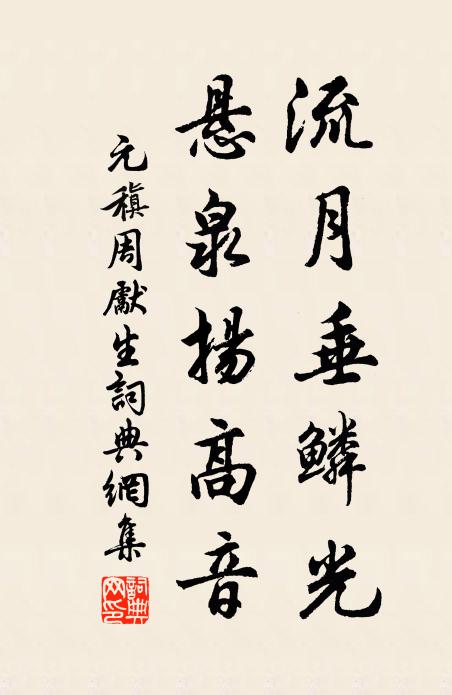 流月垂鱗光
悬泉揚高音
元稹周獻生詞典網集
詞典网印